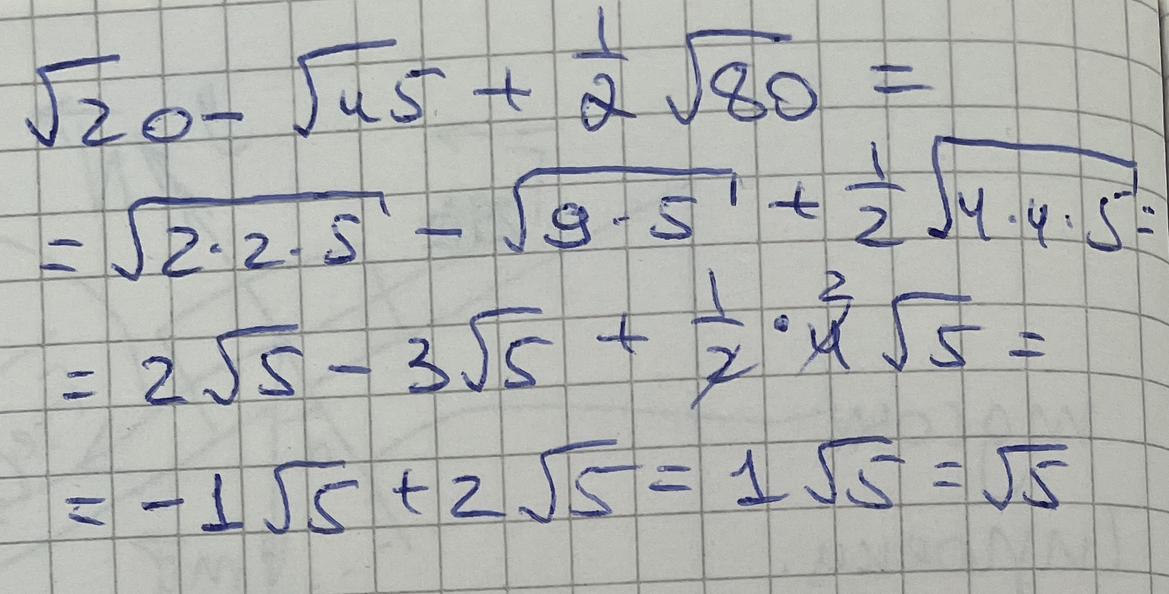 √20 - √45 + 1/2 √80 =
= √2·2·5 - √9·5 + 1/2 √4·4·5 =
= 2√5 - 3√5 + 1/2 · 4 2 √5 =
= -1√5 + 2√5 = 1√5 = √5